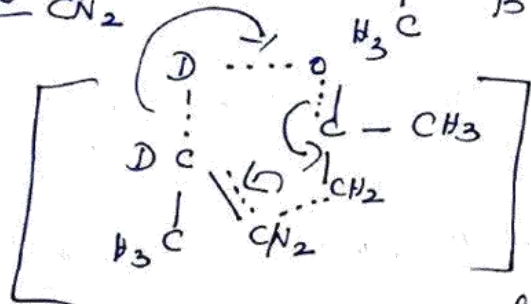 — CN₂
H₃C
D ····· O
D C
C — CH₃
CH₂
H₃C
CN₂